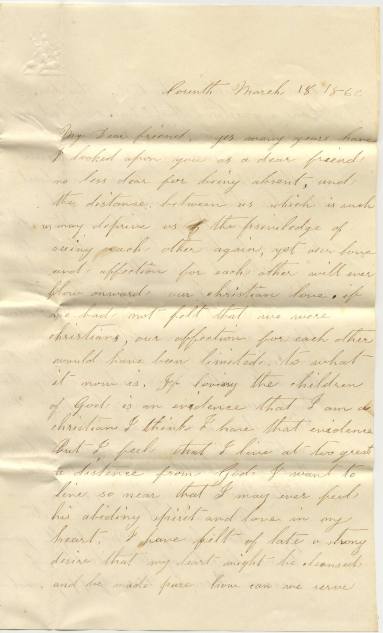 Corinth March 18 1860
My Dear friend, yes many years have
I looked upon you as a dear friend
no less dear for being absent, and
the distance between us which is such
may deprive us of the priviledge of
seeing each other again, yet our love
and affection for each other will ever
flow onward our christian love, if
we had not felt that we were
christians, our affection for each other
would have been limited to what
it now is. If loveing the children
of God is an evidence that I am a
christian I think I have that evidence
But I feel that I live at two great
a distence from God I want to
live so near that I may ever feel
his abiding spirit and love in my
heart. I have felt of late a strong
desire that my heart might be cleansed
and be made pure how can we serve